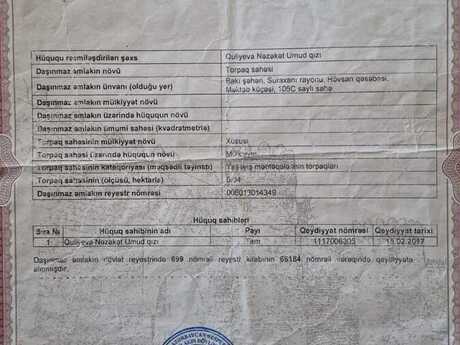 Hüququ rəsmiləşdirilən şəxs Quliyeva Nəzakət Umud qızı
Daşınmaz əmlakın növü Torpaq sahəsi
Daşınmaz əmlakın ünvanı (olduğu yer) Bakı şəhəri, Suraxanı rayonu, Hövsan qəsəbəsi,
Məktəb küçəsi, 105C saylı sahə
Daşınmaz əmlakın mülkiyyət növü
Daşınmaz əmlakın üzərində hüququn növü
Daşınmaz əmlakın ümumi sahəsi (kvadratmetrlə)
Torpaq sahəsinin mülkiyyət növü Xüsusi
Torpaq sahəsi üzərində hüququn növü Mülkiyyət
Torpaq sahəsinin kateqoriyası (məqsədli təyinatı) Yaşayış məntəqələrinin torpaqları
Torpaq sahəsinin (ölçüsü, hektarla)
Daşınmaz əmlakın reyestr nömrəsi
Hüquq sahibləri
Sıra № Hüquq sahibinin adı Payı Qeydiyyat nömrəsi Qeydiyyat tarixi
1 Quliyeva Nəzakət Umud qızı Tam
Daşınmaz əmlakın dövlət reyestrində 699 nömrəli reyestr kitabının 65184 nömrəli vərəqində qeydiyyata
alınmışdır.